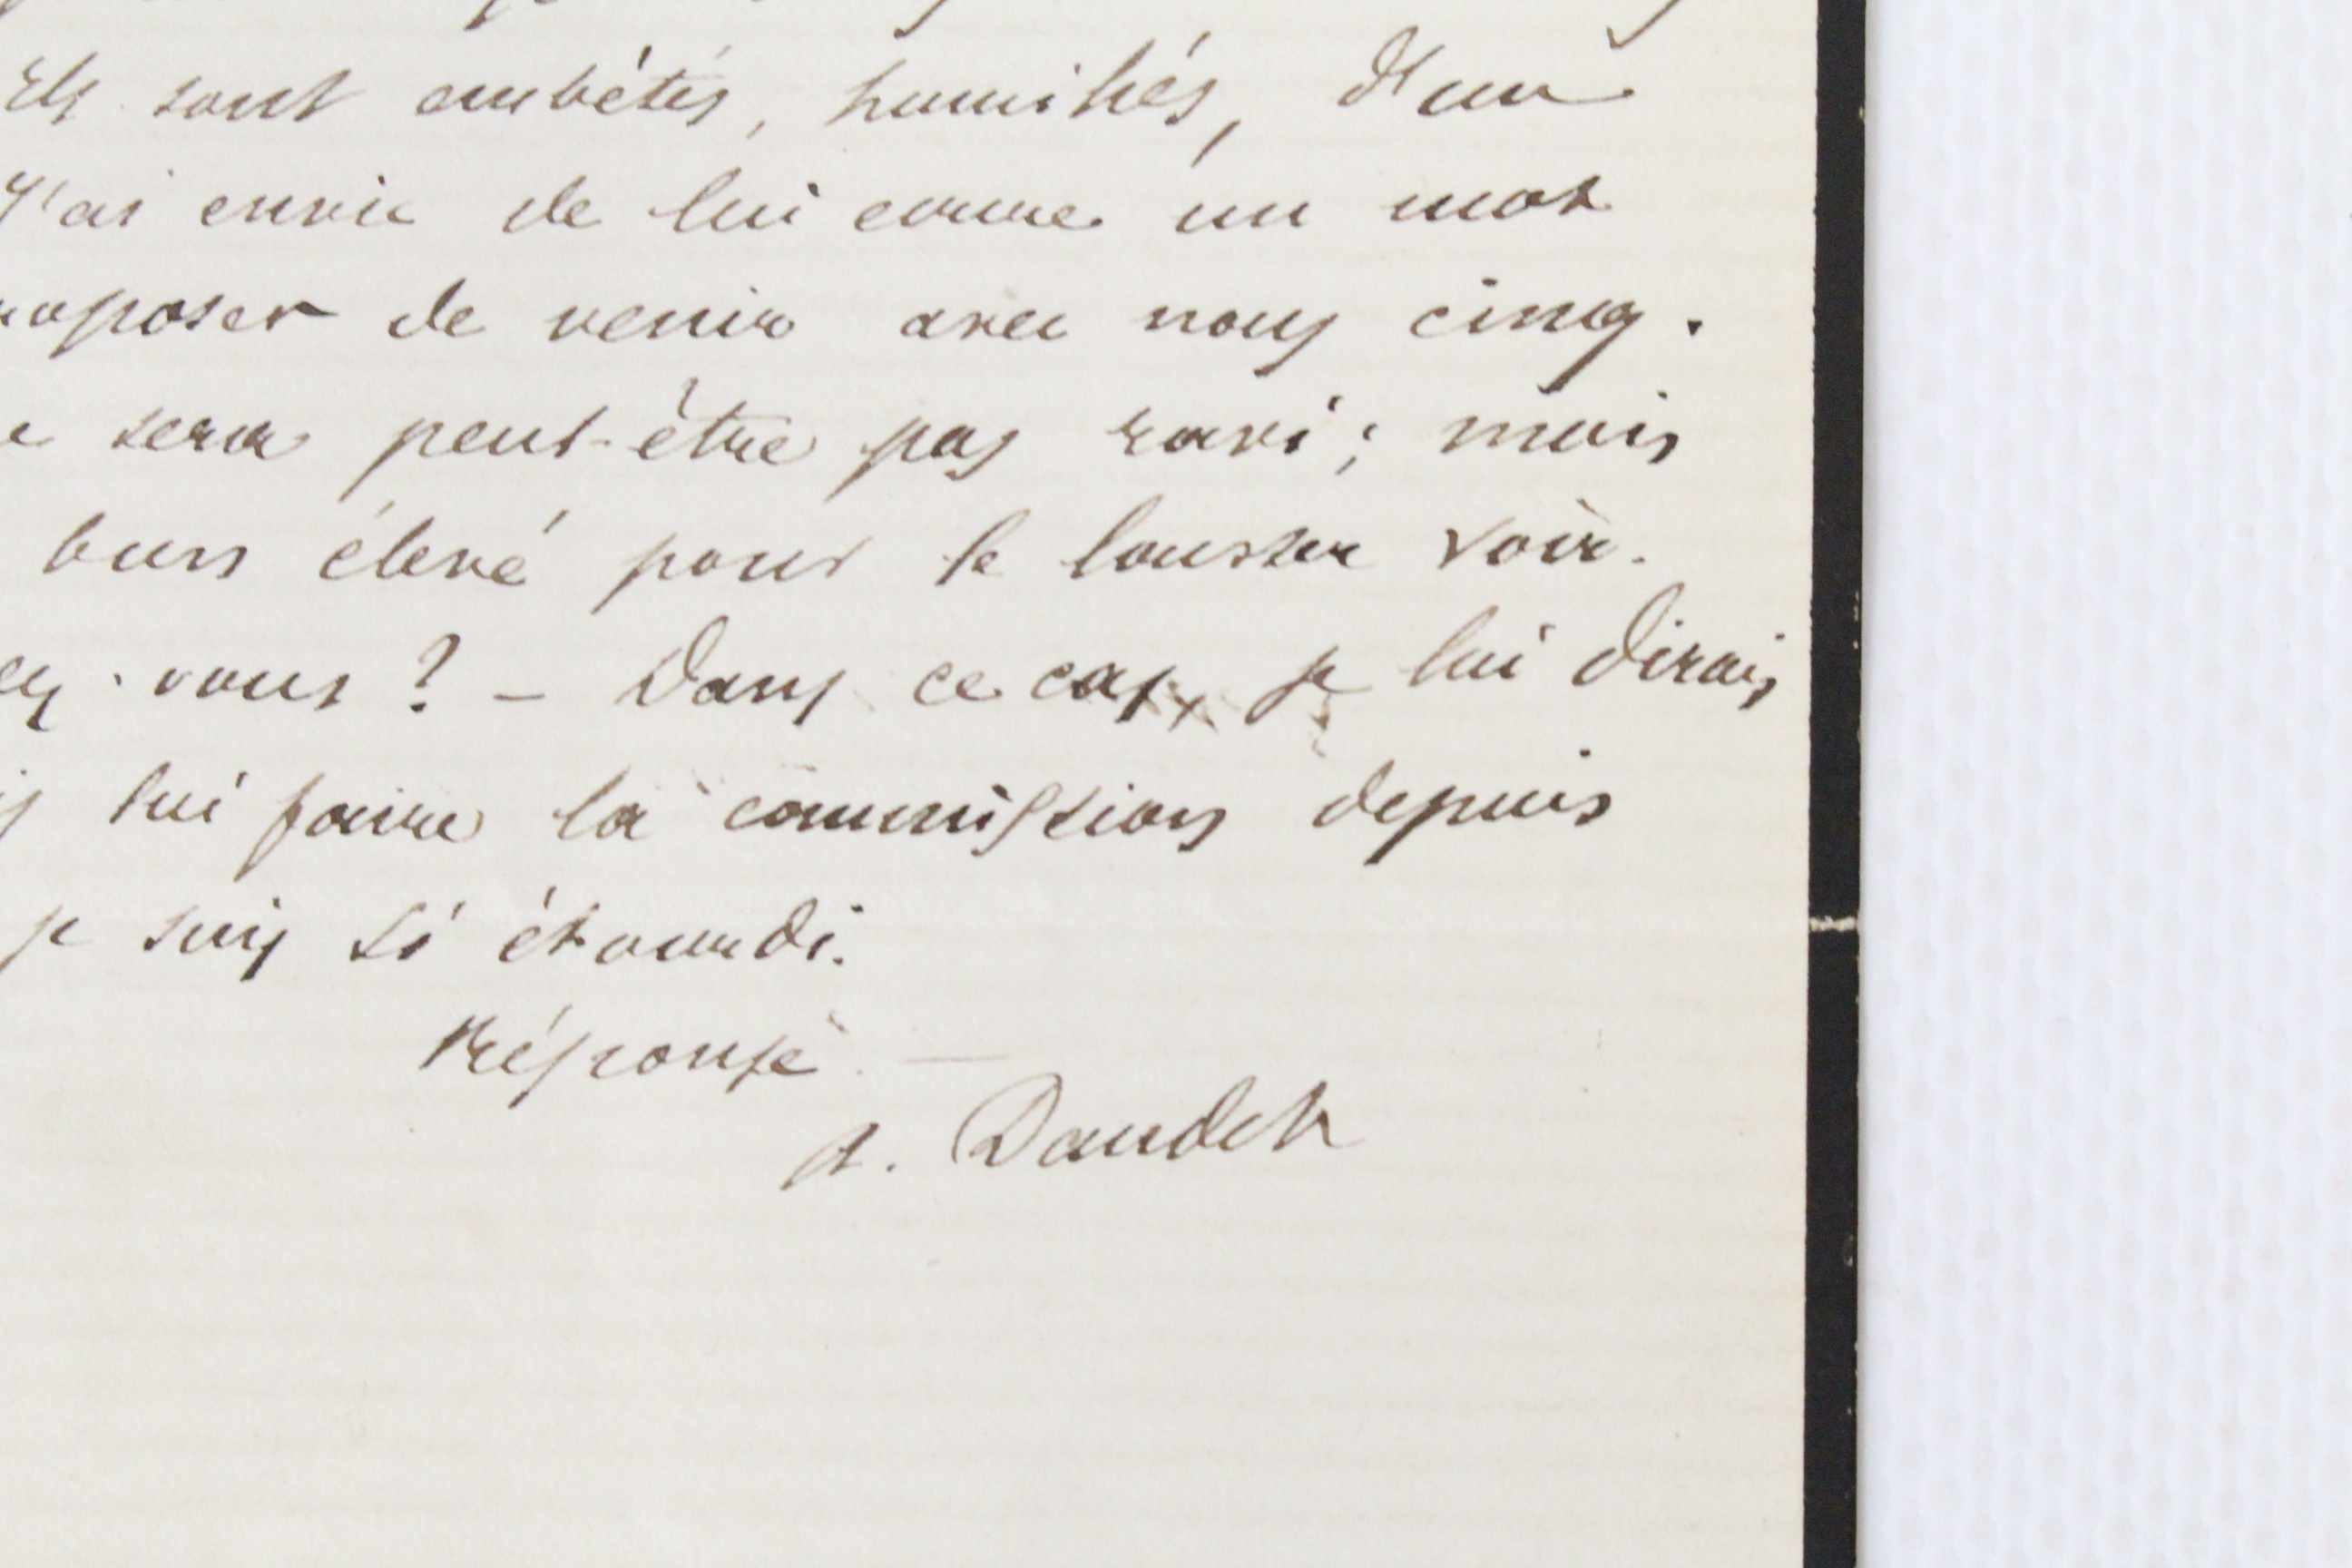 Ils sont embêtés, humiliés, d'un
J'ai envie de lui écrire un mot
roposer de venir avec nous cinq.
e sera peut-être pas ravi ; mais
bien élevé pour le laisser voir.
ez-vous ? – Dans ce cas, je lui dirais
s lui faire la commission depuis
je suis si étourdi.
Réponse. —
A. Daudet